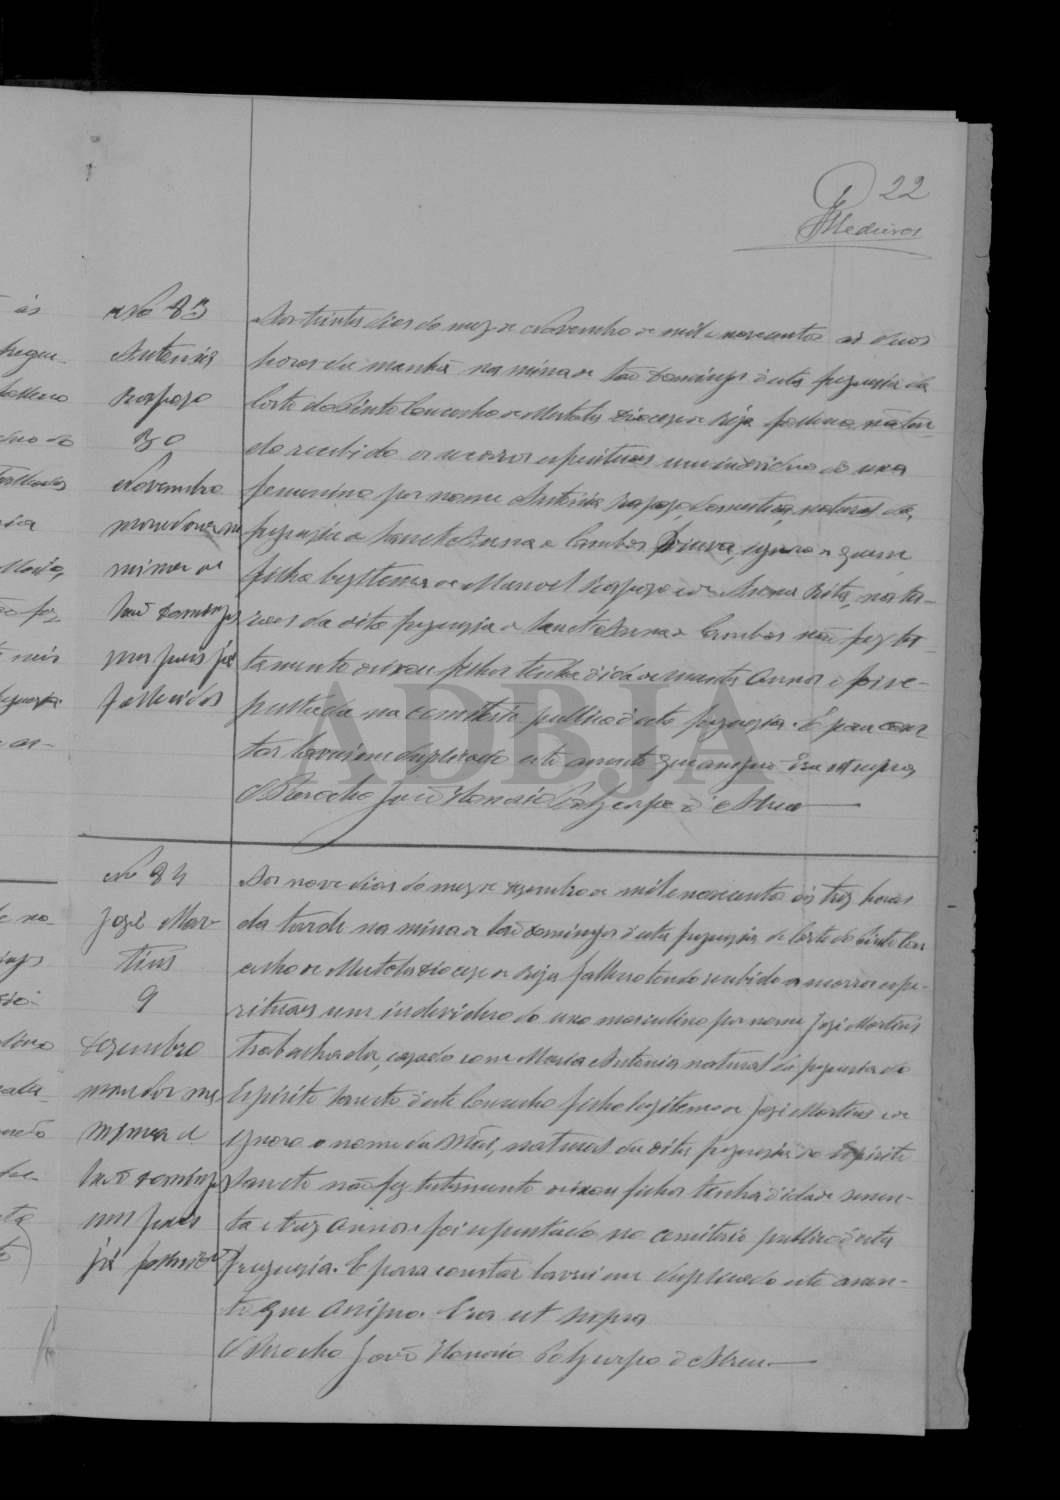 22
Medeiros
No 83
Antonia
Raposo
30
Novembro
moradora na
mina de
São Domingos
seus pais já
fallecidos
Aos trinta dias do mez de Novembro de mil e novecentos ás duas
horas da manhã na mina de São Domingos d'esta freguezia da
Corte do Pinto Concelho de Mertola Diocese de Beja falleceu não ten-
do recebido os socorros espirituaes um individuo do sexo
femenino por nome Antonia Raposo, domestica, natural da
freguezia de Sancta Anna de Cambas Viuva, ignoro de quem
filha legittema de Manoel Raposo e de Anna Rita, natu-
raes da dita freguezia de Sancta Anna de Cambas não fez tes-
tamento deixou filhos tinha d'idade annos e foi se-
pultada no cemiterio publico d'esta freguezia. E para cons-
tar lavrei em duplicado este assento que assigno Era ut supra
O Parocho João Honorio Polycarpo d'Abreu
No 84
José Mar-
tins
9
Dezembro
morador na
Mina de
São Domingos
seus paes
já fallecidos
Aos nove dias do mez de Dezembro de mil e novecentos ás trez horas
da tarde na mina de São Domingos d'esta freguezia de Corte do Pinto Con-
celho de Mertola Diocese de Beja falleceo tendo recebido os socorros espi-
rituaes um individuo do sexo masculino por nome José Martins
trabalhador, casado com Maria Antonia natural da freguezia do
Espirito Sancto d'este Concelho filho legitemo de José Martins e de
Ignoro o nome da Mãi, natural da dita freguezia do Espirito
Sancto não fez testamento deixou filhos tinha d'idade sessen-
ta e trez annos e foi sepultado no cemiterio publico d'esta
freguezia. E para constar lavrei em duplicado este assen-
to que assigno. Era ut supra
O Parocho João Honorio Polycarpo d'Abreu
ADBJA